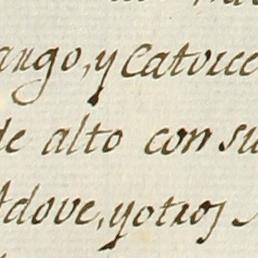 ango, y Catorce
de alto con su
Adove, y otros